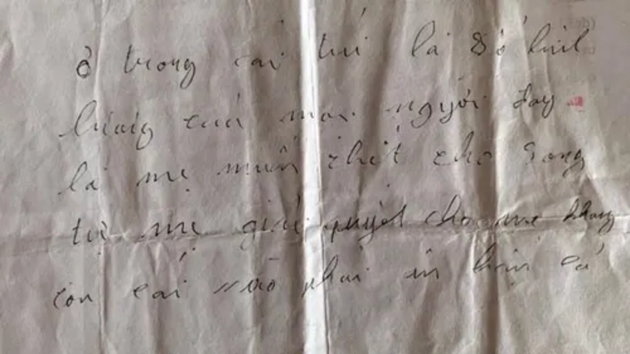 ở trong cái túi là số
của mọi người đay
là mẹ muốn chết cho song
tự mẹ giải quyết cho mẹ không
con cái nào phải ân hận cả